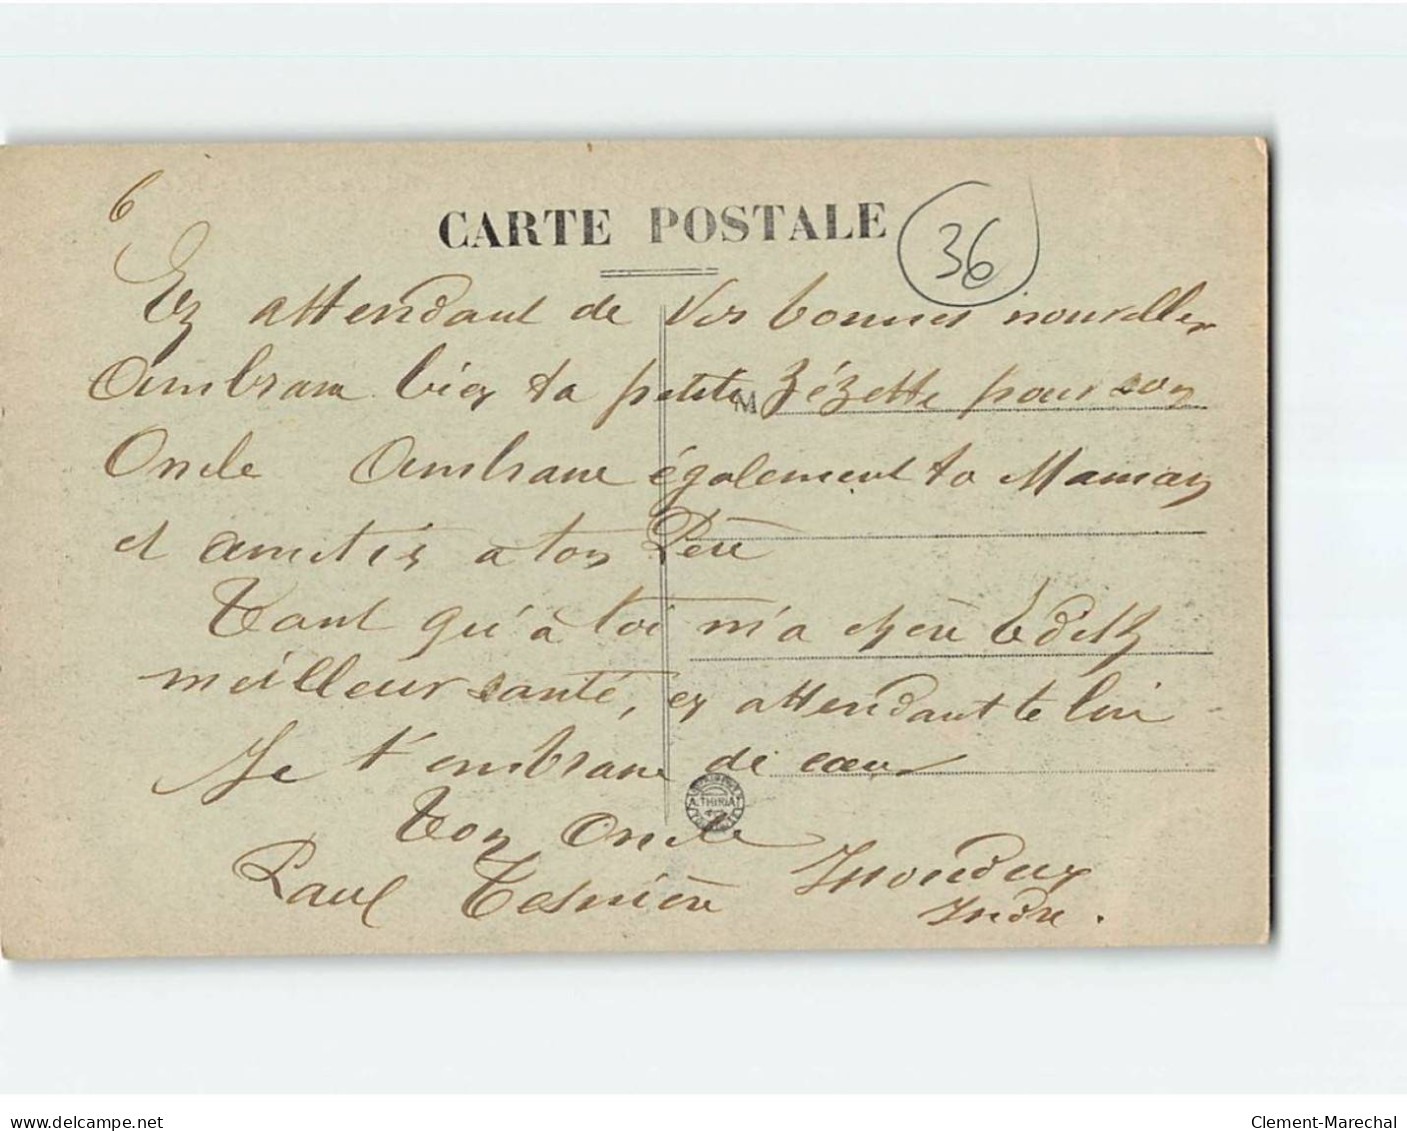 6
CARTE POSTALE
36
En attendant de Vos bonnes nouvelles
Embrasse bien ta petite Zézette pour son
M
Oncle Embrasse également ta Maman
et amitiés a ton Père
Tant qu'à toi m'a chère Edith
meilleur santé, en attendant te lire
Je t'embrasse de cœur
A. THIRIAT
Ton Oncle
Paul Tesnière
Indre.
delcampe.net
Clement-Marechal